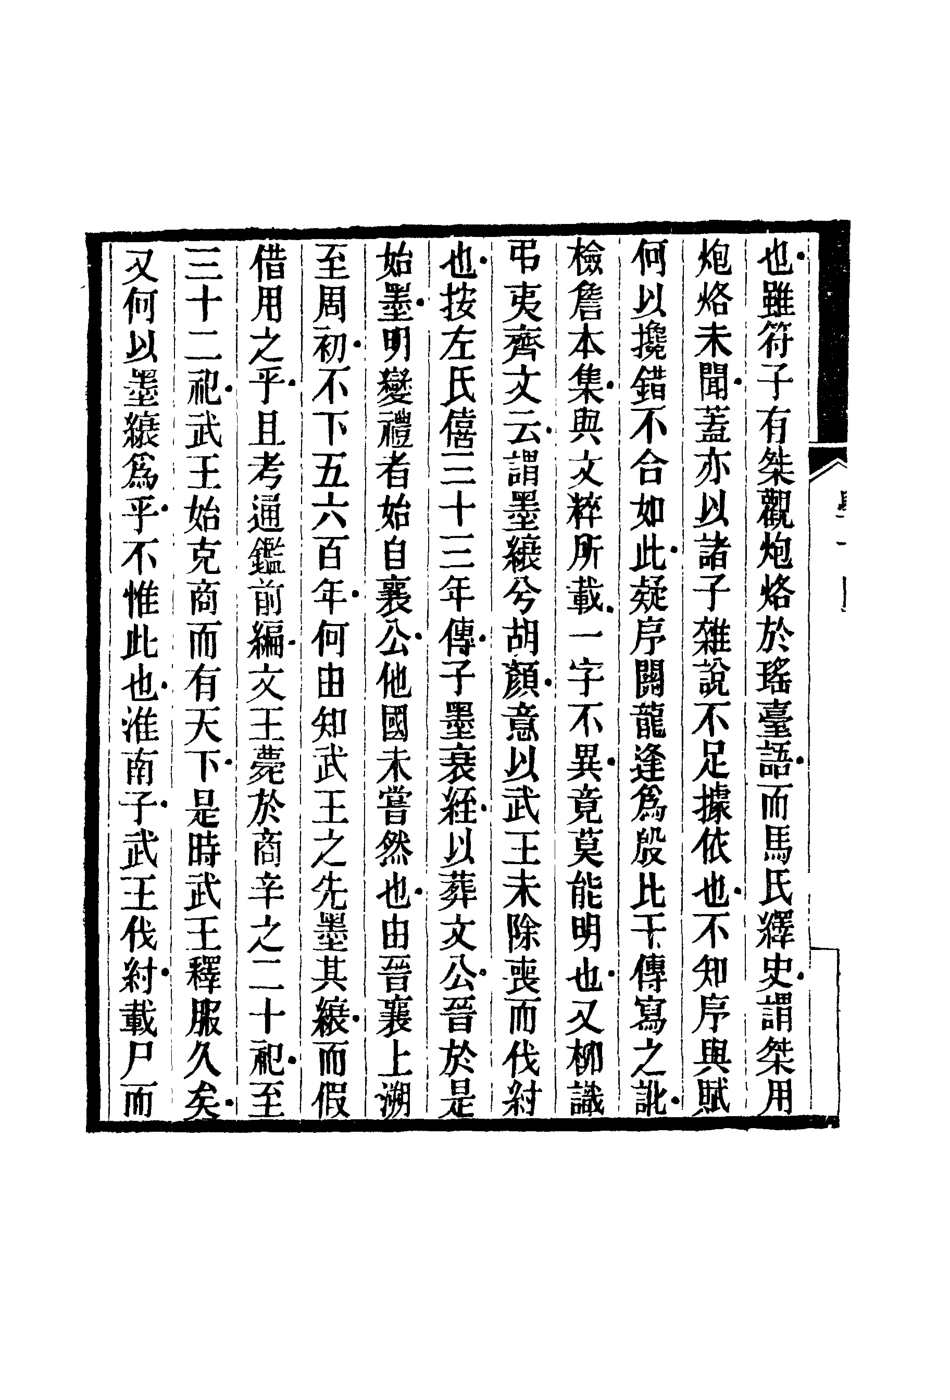 也雖符子有桀觀炮烙於瑤臺語而馬氏釋史謂桀用
炮烙未聞蓋亦以諸子雜說不足據依也不知序與賦
何以攙錯不合如此疑序關龍逢爲殷比干傳寫之訛
檢詹本集與文粹所載一字不異竟莫能明也又柳識
弔夷齊文云謂墨縗兮胡顏意以武王未除喪而伐紂
也按左氏僖三十三年傳子墨衰絰以葬文公晉於是
始墨明變禮者始自襄公他國未嘗然也由晉襄上溯
至周初不下五六百年何由知武王之先墨其縗而假
借用之乎且考通鑑前編文王薨於商辛之二十祀至
三十二祀武王始克商而有天下是時武王釋服久矣
又何以墨縗爲乎不惟此也淮南子武王伐紂載尸而